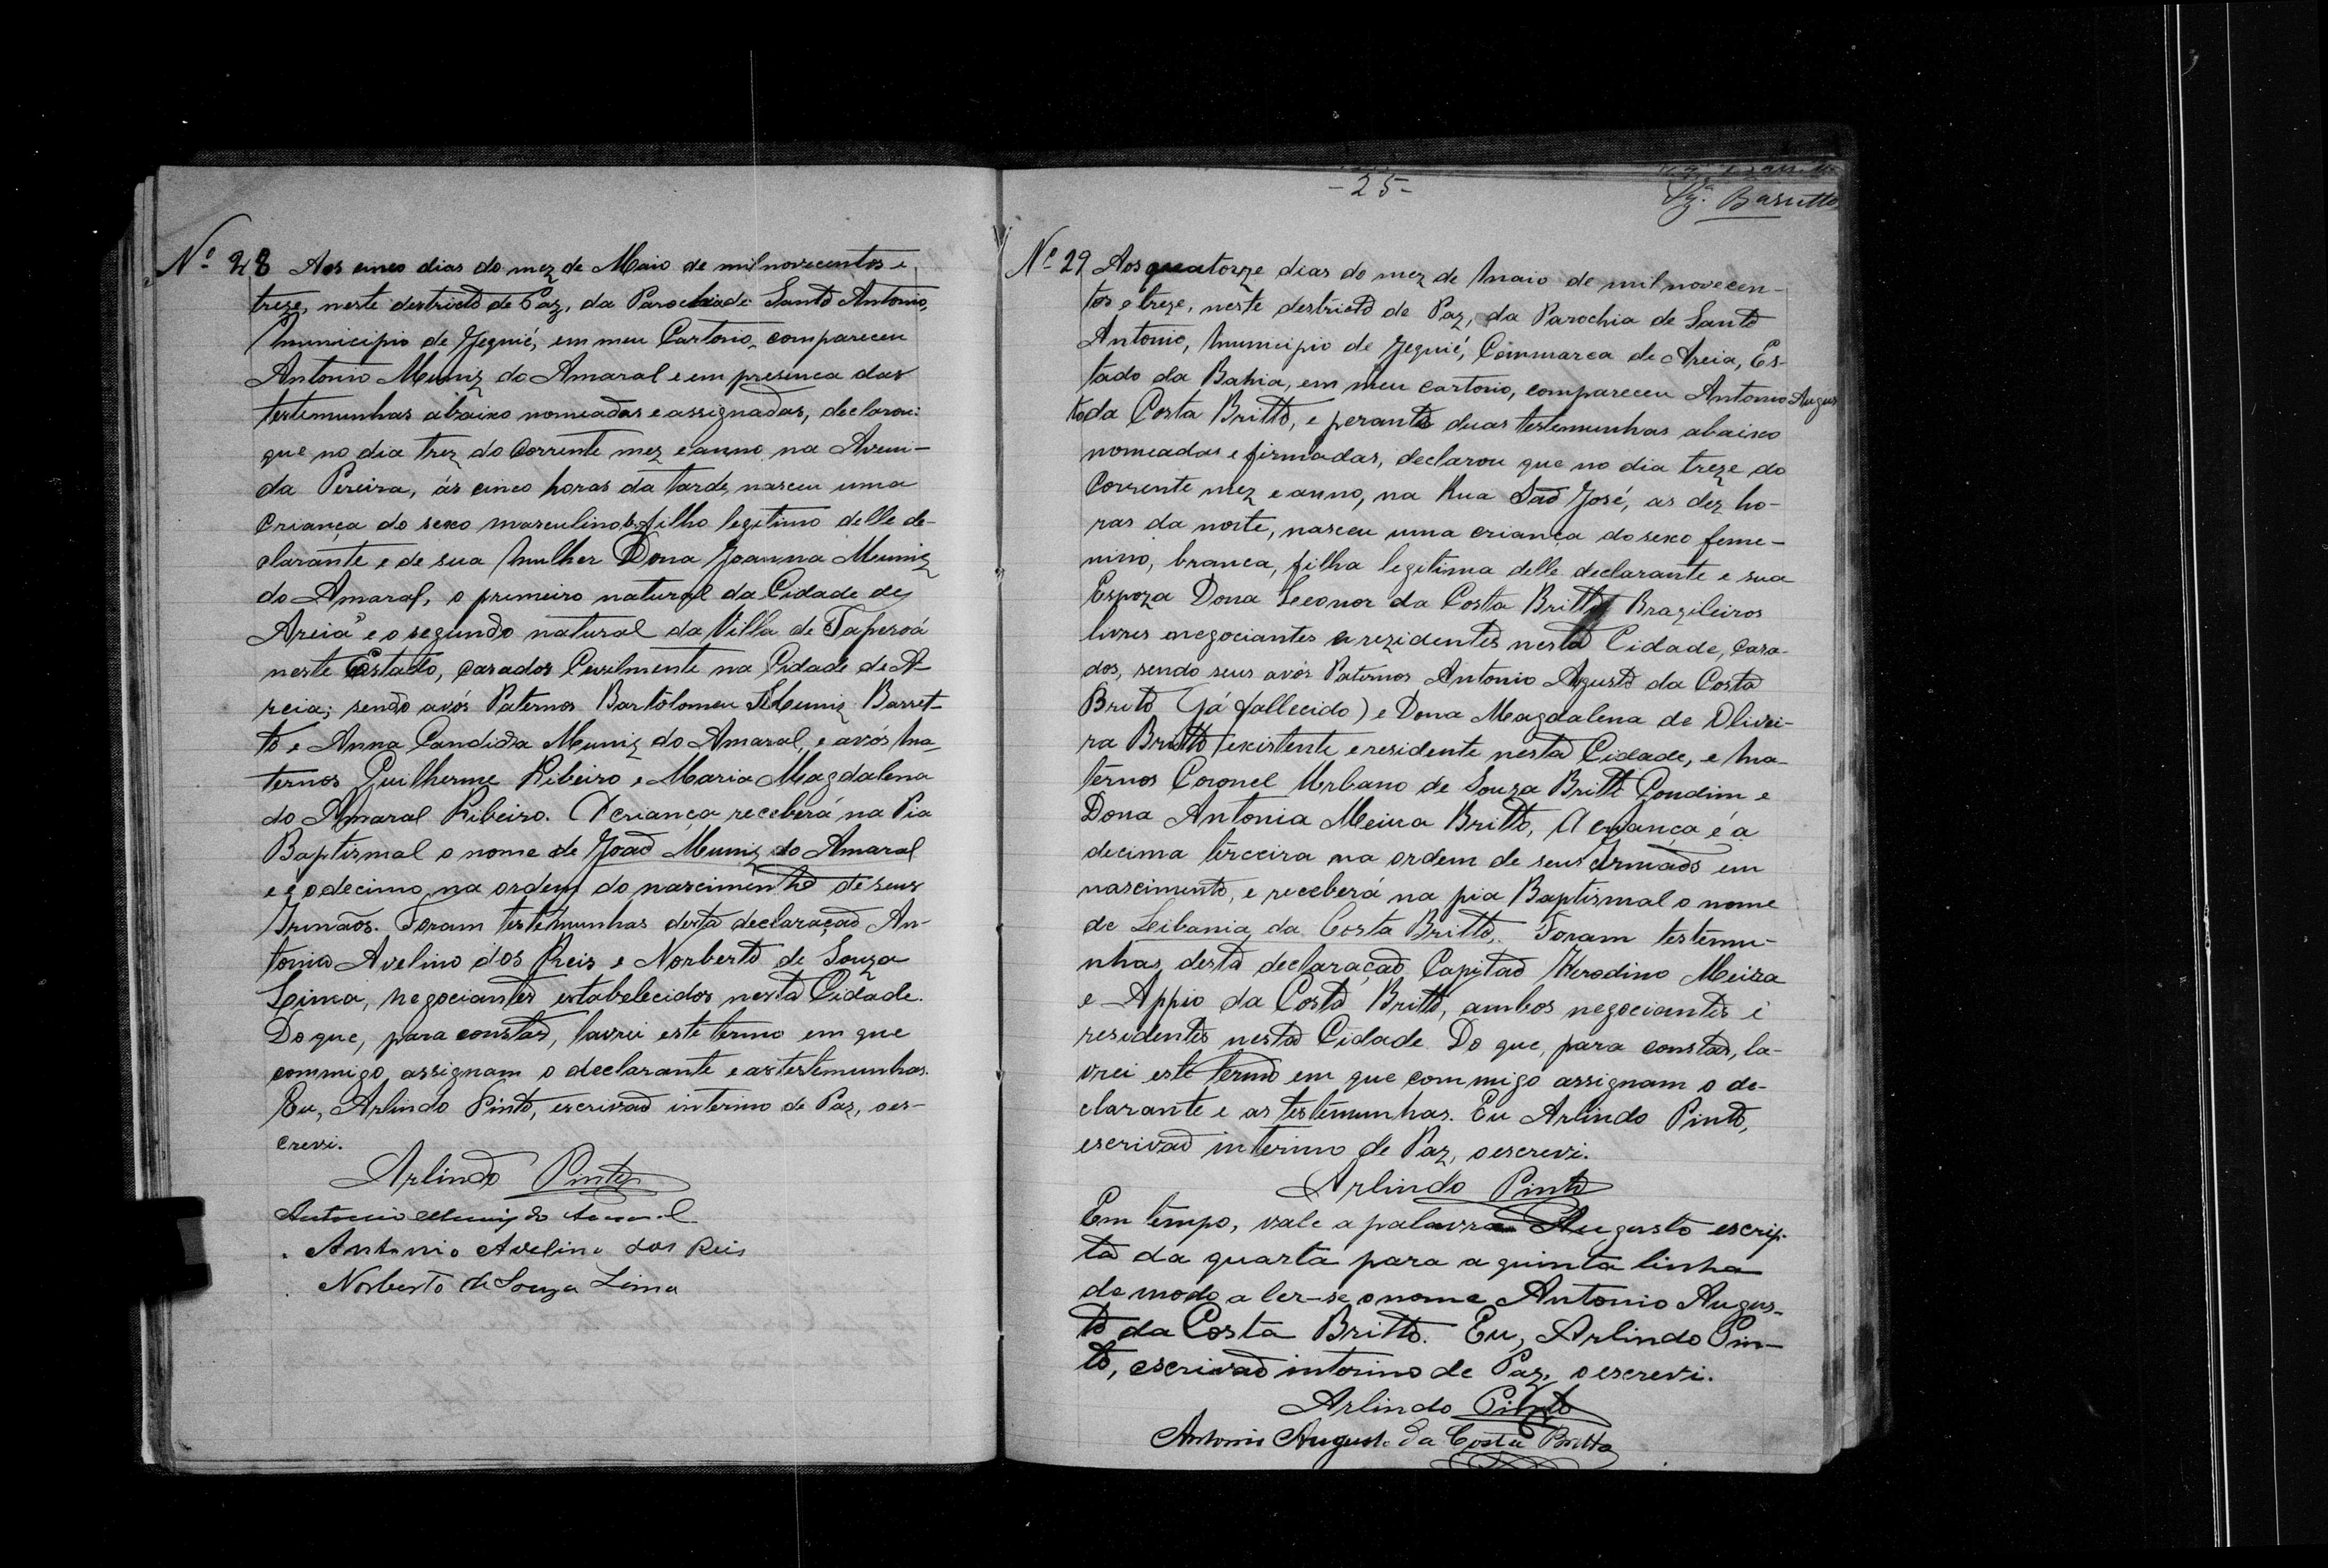 Nº 28 Aos cinco dias do mez de Maio de mil novecentos e
treze, neste destricto de Paz, da Parochia de Santo Antonio,
Municipio de Jequié, em meu Cartorio, compareceu
Antonio Muniz do Amaral e em presenca das
testimunhas abaixo nomeadas e assignadas, declarou:
que no dia trez do corrente mez e anno, na Aveni-
da Pereira, ás cinco horas da tarde, nasceu uma
criança do sexo masculino filho legitimo delle de-
clarante e de sua Mulher Dona Joanna Muniz
do Amaral, o primeiro natural da Cidade de
Areia e o segundo natural da Villa de Taperoá
neste Estado, casados Civilmente na Cidade de A-
reia; sendo avós Paternos Bartolomeu Muniz Barret-
to e Anna Candida Muniz do Amaral, e avós Ma-
ternos Guilherme Ribeiro e Maria Magdalena
do Amaral Ribeiro. A criança receberá na Pia
Baptismal o nome de João Muniz do Amaral
e é o decimo na ordem do nascimento de seus
Irmãos. Foram testemunhas desta declaração An-
tonio Avelino dos Reis e Norberto de Souza
Lima, negociantes estabelecidos nesta Cidade.
Do que, para constar, lavrei este termo em que
commigo assignam o declarante e as testemunhas.
Eu, Arlindo Pinto, escrivão interino de Paz, o es-
crevi.
Arlindo Pinto
Antonio Muniz do Amaral
Antonio Avelino dos Reis
Norberto de Souza Lima
- 25 -
Basutto
Nº 29 Aos quatorze dias do mez de Maio de mil novecen-
tos e treze, neste destricto de Paz, da Parochia de Santo
Antonio, Municipio de Jequié, Commarca de Areia, Es-
tado da Bahia, em meu cartorio, compareceu Antonio Augus
to da Costa Britto, e perante duas testemunhas abaixo
nomeadas e firmadas, declarou que no dia treze do
corrente mez e anno, na Rua São José, as dez ho-
ras da noite, nasceu uma criança do sexo feme-
nino, branca, filha legitima delle declarante e sua
Espoza Dona Leonor da Costa Britto Brazileiros
livres negociantes e rezidentes nesta Cidade, casa-
dos, sendo seus avós Paternos Antonio Agusto da Costa
Brito (já fallecido) e Dona Magdalena de Olivei-
ra Britto existente e residente nesta Cidade, e Ma-
ternos Coronel Urbano de Souza Britto Gondim e
Dona Antonia Meira Britto, A criança é a
decima terceira na ordem de seus Irmãos em
nascimento, e receberá na pia Baptismal o nome
de Leibania da Costa Britto. Foram testemu-
nhas desta declaração Capitão Herodino Meira
e Appio da Costa Britto, ambos negociantes e
residentes nesta Cidade. Do que, para constar, la-
vrei este termo em que commigo assignam o de-
clarante e as testemunhas. Eu Arlindo Pinto,
escrivão interino de Paz, o escrevi.
Arlindo Pinto
Em tempo, vale a palavra Augusto escrip-
ta da quarta para a quinta linha
de modo a ler-se o nome Antonio Augus-
to da Costa Britto. Eu, Arlindo Pin-
to, escrivão interino de Paz, o escrevi.
Arlindo Pinto
Antonio Augusto da Costa Britto